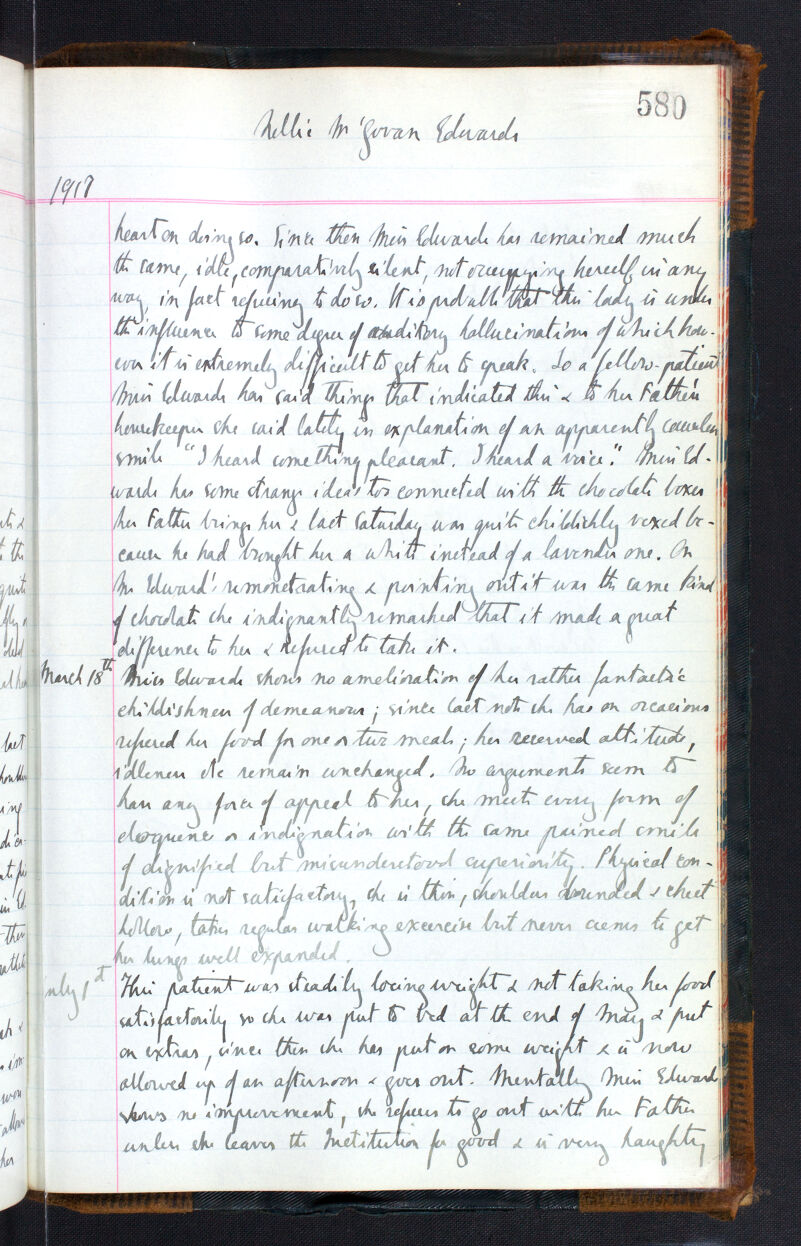 580
Nellie McGovan Edwards
1917
heart on doing so. Since then Miss Edwards has remained much
the same, idle, comparatively silent, not occupying herself in any
way, in fact refusing to do so. It is probable that this lady is under
the influence to some degree of auditory hallucinations of which how-
ever it is extremely difficult to get her to speak. To a fellow-patient
Miss Edwards has said things that indicated this & to her Father's
housekeeper she said lately in explanation of an apparently causeless
smile "I heard something pleasant. I heard a voice." Miss Ed-
wards has some strange ideas too connected with the chocolate boxes
her Father brings her & last Saturday was quite childishly vexed be-
cause he had brought her a white instead of a lavender one. On
Mr Edward's remonstrating & pointing out it was the same kind
of chocolate she indignantly remarked that it made a great
difference to her & refused to take it.
March 18th Miss Edwards shows no amelioration of her rather fantastic
childishness of demeanour; since last note she has on occasions
refused her food for one or two meals; her reserved attitude,
idleness etc remain unchanged. No arguments seem to
have any force of appeal to her, she meets every form of
eloquence or indignation with the same pained smile
of dignified but misunderstood superiority. Physical con-
dition is not satisfactory, she is thin, shoulders rounded & chest
hollow, takes regular walking exercise but never seems to get
her lungs well expanded.
July 1st This patient was steadily losing weight & not taking her food
satisfactorily so she was put to bed at the end of May & put
on extras, since then she has put on some weight & is now
allowed up of an afternoon & goes out. Mentally Miss Edwards
shows no improvement, she refuses to go out with her Father
unless she leaves the Institution for good & is very haughty